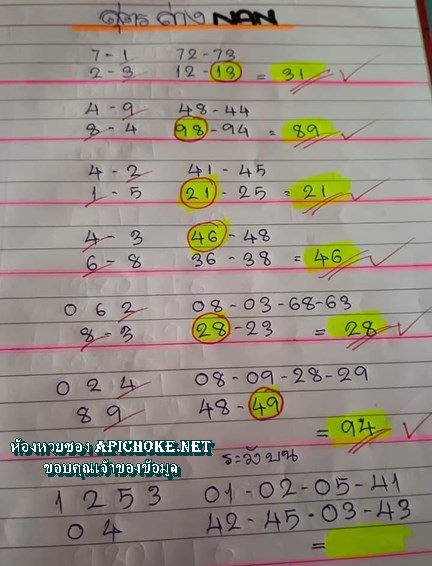 สูตร ต่าง NAN
7 - 1 72 - 73
2 - 3 12 - 13 = 31
4 - 9 48 - 44
8 - 4 98 - 94 = 89
4 - 2 41 - 45
1 - 5 21 - 25 = 21
4 - 3 46 - 48
6 - 8 36 - 38 = 46
0 6 2 08 - 03 - 68 - 63
8 - 3 28 - 23 = 28
0 2 4 08 - 09 - 28 - 29
8 9 48 - 49
= 94
ห้องหวยซอง APICHOKE.NET
ขอบคุณเจ้าของข้อมูล
ระวังบน
1 2 5 3 01 - 02 - 05 - 41
0 4 42 - 45 - 03 - 43
=